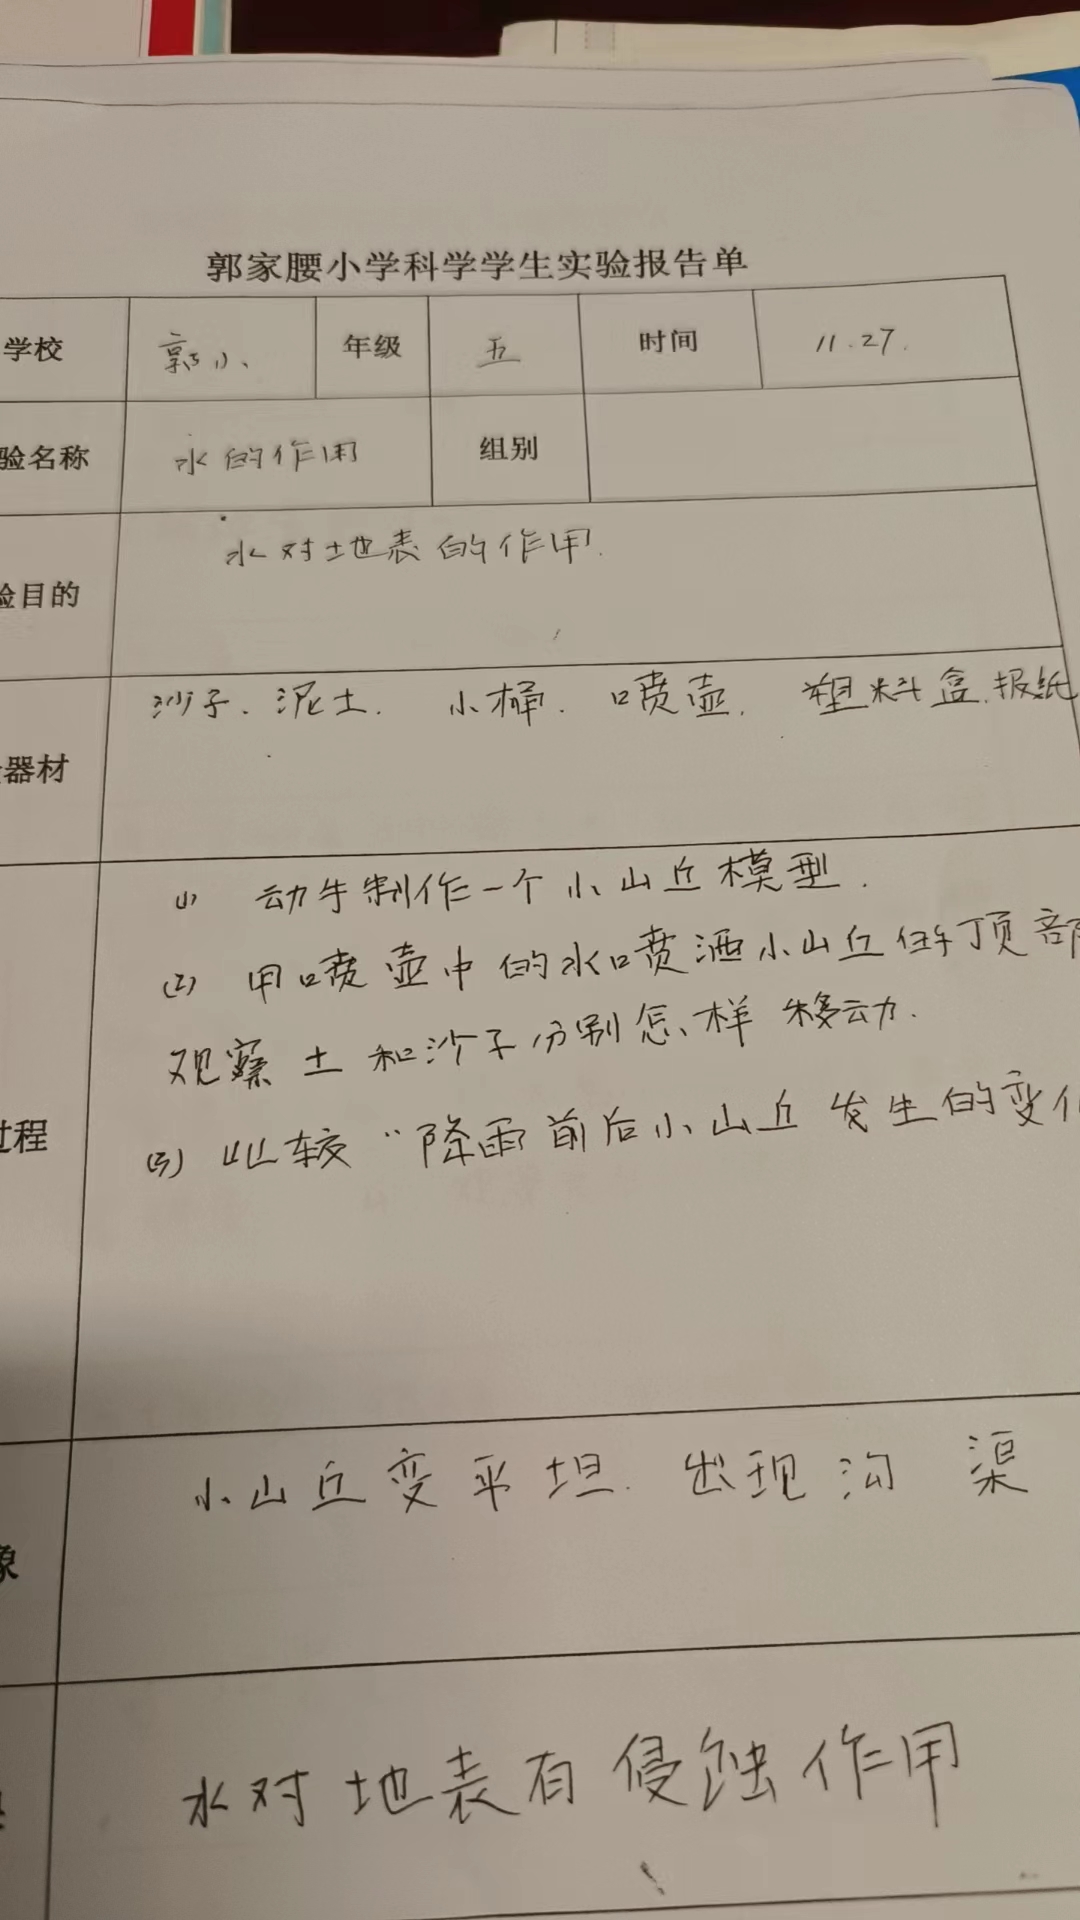 郭家腰小学科学学生实验报告单
学校 郭小 年级 五 时间 11.27.
验名称 水的作用 组别
验目的 水对地表的作用.
器材 沙子.泥土. 小桶. 喷壶. 塑料盒.报纸
(1) 动手制作一个小山丘模型.
(2) 用喷壶中的水喷洒小山丘 顶部
观察土和沙子分别怎样移动.
过程 (3) 比较“降雨前后小山丘发生的变化
象 小山丘变平坦. 出现沟渠
水对地表有侵蚀作用